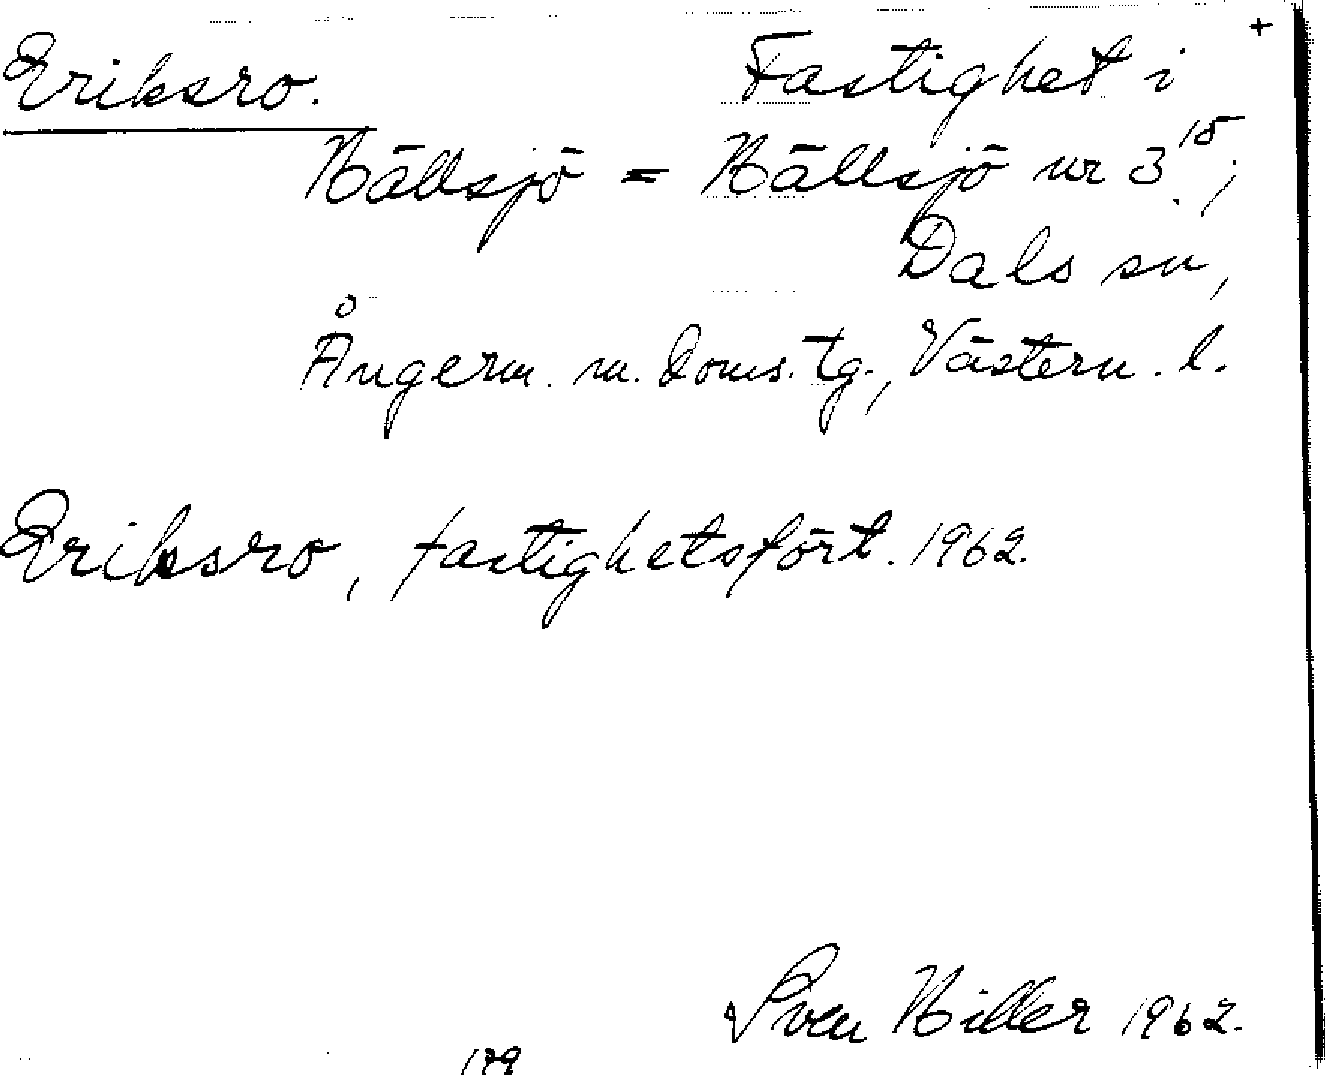 +
Eriksro. Fastighet i
Hällsjö = Hällsjö nr 3¹⁵;
Dals sn,
Ångerm. m. doms. tg., Västern. l.
Eriksro, fastighetsfört. 1962.
Sven Hiller 1962.
179